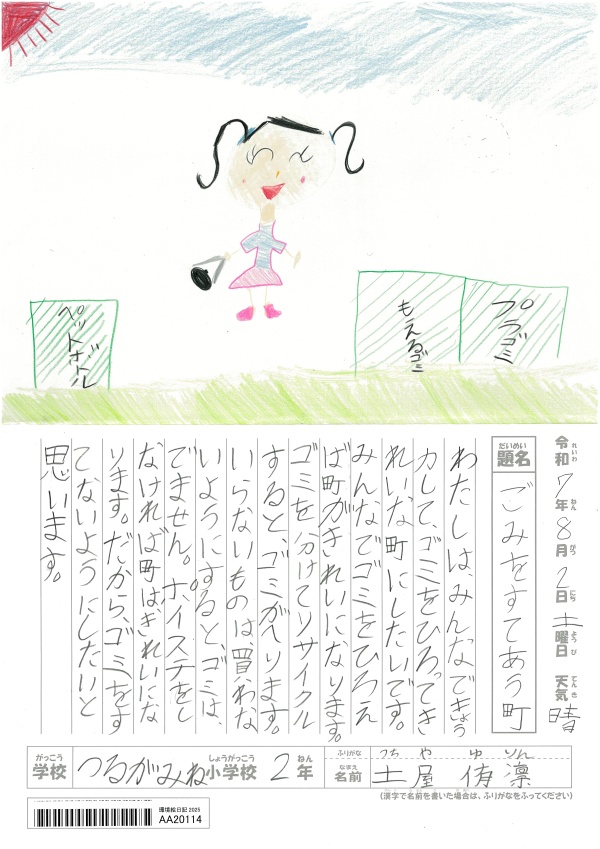 ペットボトル
もえるゴミ
プラゴミ
令和7年8月2日土曜日 天気 晴
れいわ ねん がつ にち ようび てんき
だいめい
題名
ごみをすてあう町
わたしは、みんなできょう
力して、ゴミをひろってき
れいな町にしたいです。
みんなでゴミをひろえ
ば町がきれいになります。
ゴミを分けてリサイクル
すると、ゴミがへります。
いらないものは、買わな
いようにすると、ゴミは、
でません。ポイステをし
なければ町はきれいにな
ります。だから、ゴミをす
てないようにしたいと
思います。
がっこう しょうがっこう ねん
学校 つるがみね小学校 2年
ふりがな つち や ゆ りん
なまえ
名前 土屋 侑凛
(漢字で名前を書いた場合は、ふりがなをふってください)
環境絵日記 2025
AA20114